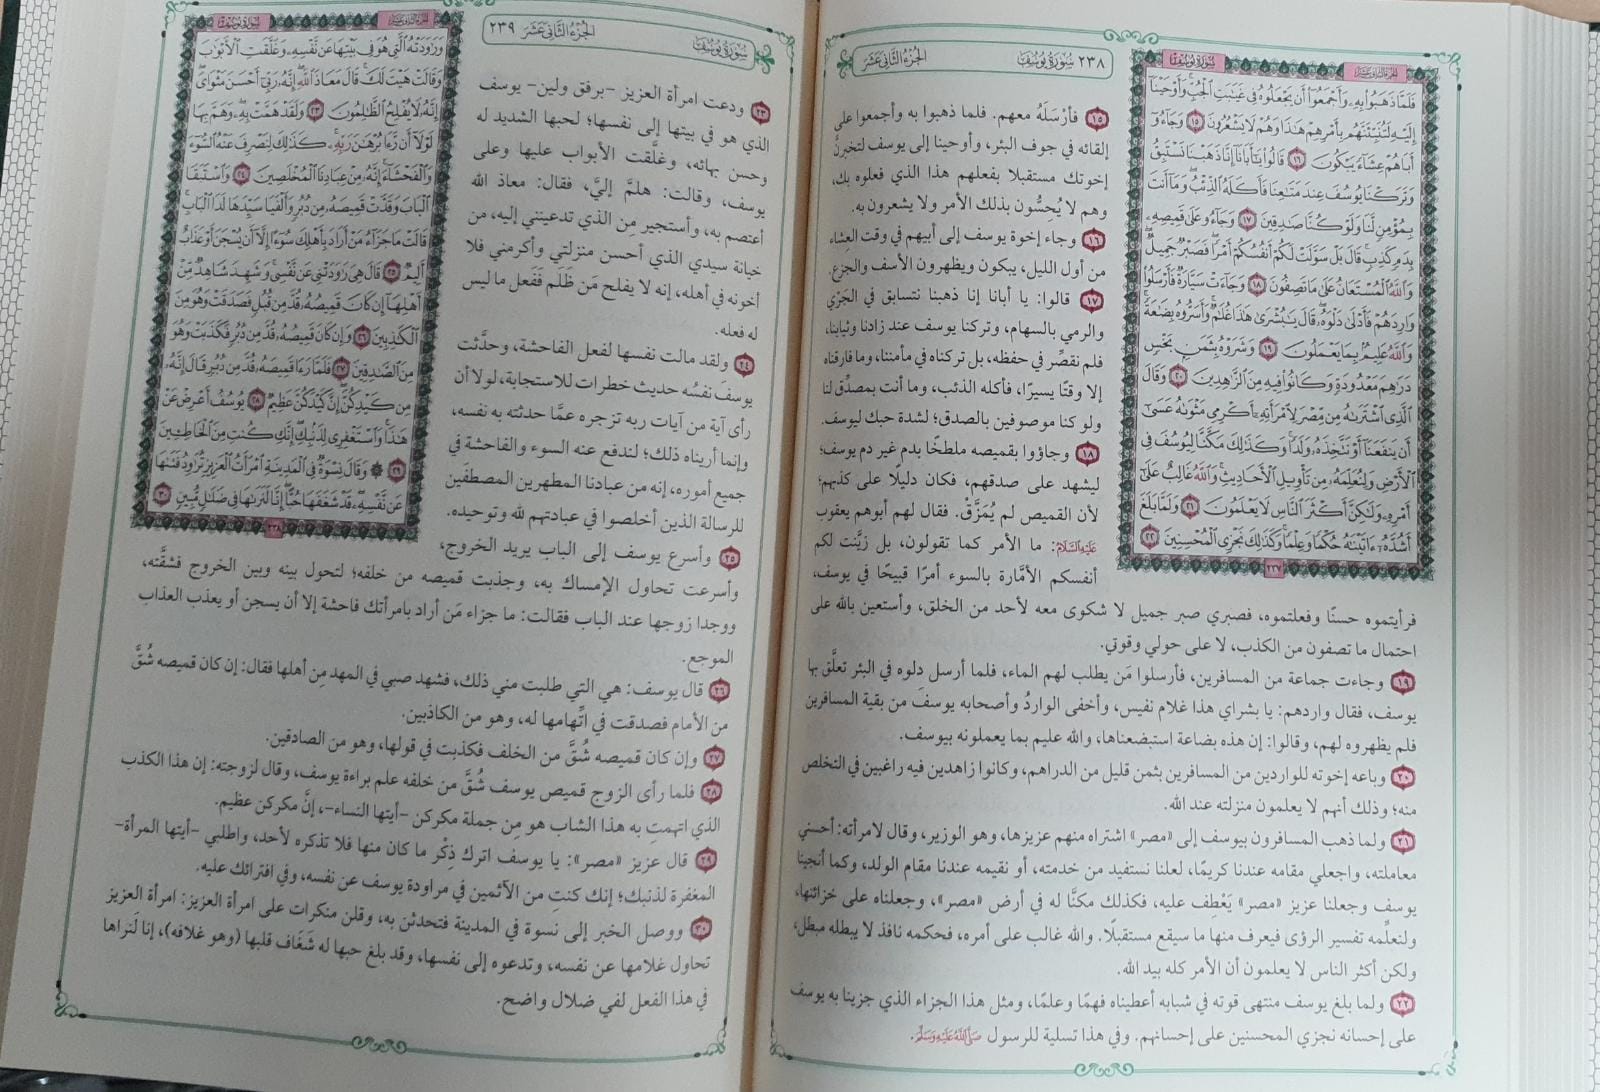 ٢٣٨ سُورَةُ يُوسُفَ
الجُزءُ الثَّانِي عَشَرَ
الجزء الثاني عشر
سُورَةُ يُوسُفَ
فَلَمَّا ذَهَبُوا۟ بِهِۦ وَأَجْمَعُوٓا۟ أَن يَجْعَلُوهُ فِى غَيَٰبَتِ ٱلْجُبِّ وَأَوْحَيْنَآ
إِلَيْهِ لَتُنَبِّئَنَّهُم بِأَمْرِهِمْ هَٰذَا وَهُمْ لَا يَشْعُرُونَ ١٥ وَجَآءُوٓ
أَبَاهُمْ عِشَآءً يَبْكُونَ ١٦ قَالُوا۟ يَٰٓأَبَانَآ إِنَّا ذَهَبْنَا نَسْتَبِقُ
وَتَرَكْنَا يُوسُفَ عِندَ مَتَٰعِنَا فَأَكَلَهُ ٱلذِّئْبُ وَمَآ أَنتَ
بِمُؤْمِنٍ لَّنَا وَلَوْ كُنَّا صَٰدِقِينَ ١٧ وَجَآءُو عَلَىٰ قَمِيصِهِۦ
بِدَمٍ كَذِبٍ قَالَ بَلْ سَوَّلَتْ لَكُمْ أَنفُسُكُمْ أَمْرًا فَصَبْرٌ جَمِيلٌ
وَٱللَّهُ ٱلْمُسْتَعَانُ عَلَىٰ مَا تَصِفُونَ ١٨ وَجَآءَتْ سَيَّارَةٌ فَأَرْسَلُوا۟
وَارِدَهُمْ فَأَدْلَىٰ دَلْوَهُۥ قَالَ يَٰبُشْرَىٰ هَٰذَا غُلَٰمٌ وَأَسَرُّوهُ بِضَٰعَةً
وَٱللَّهُ عَلِيمٌۢ بِمَا يَعْمَلُونَ ١٩ وَشَرَوْهُ بِثَمَنٍۭ بَخْسٍ
دَرَٰهِمَ مَعْدُودَةٍ وَكَانُوا۟ فِيهِ مِنَ ٱلزَّٰهِدِينَ ٢٠ وَقَالَ
ٱلَّذِى ٱشْتَرَىٰهُ مِن مِّصْرَ لِٱمْرَأَتِهِۦٓ أَكْرِمِى مَثْوَىٰهُ عَسَىٰٓ
أَن يَنفَعَنَآ أَوْ نَتَّخِذَهُۥ وَلَدًا وَكَذَٰلِكَ مَكَّنَّا لِيُوسُفَ فِى
ٱلْأَرْضِ وَلِنُعَلِّمَهُۥ مِن تَأْوِيلِ ٱلْأَحَادِيثِ وَٱللَّهُ غَالِبٌ عَلَىٰٓ
أَمْرِهِۦ وَلَٰكِنَّ أَكْثَرَ ٱلنَّاسِ لَا يَعْلَمُونَ ٢١ وَلَمَّا بَلَغَ
أَشُدَّهُۥٓ ءَاتَيْنَٰهُ حُكْمًا وَعِلْمًا وَكَذَٰلِكَ نَجْزِى ٱلْمُحْسِنِينَ ٢٢
٢٣٧
١٥ فأرْسَلَهُ معهم. فلما ذهبوا به وأجمعوا على
إلقائه في جوف البئر، وأوحينا إلى يوسف لتخبرنَّ
إخوتك مستقبلا بفعلهم هذا الذي فعلوه بك،
وهم لا يُحِسُّون بذلك الأمر ولا يشعرون به.
١٦ وجاء إخوة يوسف إلى أبيهم في وقت العِشاء
من أول الليل، يبكون ويظهرون الأسف والجزع.
١٧ قالوا: يا أبانا إنا ذهبنا نتسابق في الجَرْي
والرمي بالسهام، وتركنا يوسف عند زادنا وثيابنا،
فلم نقصِّر في حفظه، بل تركناه في مأمننا، وما فارقناه
إلا وقتًا يسيرًا، فأكله الذئب، وما أنت بمصدِّق لنا
ولو كنا موصوفين بالصدق؛ لشدة حبك ليوسف.
١٨ وجاؤوا بقميصه ملطخًا بدم غير دم يوسف؛
ليشهد على صدقهم، فكان دليلًا على كذبهم؛
لأن القميص لم يُمَزَّقْ. فقال لهم أبوهم يعقوب
عَلَيْهِ السَّلَامُ: ما الأمر كما تقولون، بل زيَّنت لكم
أنفسكم الأمَّارة بالسوء أمرًا قبيحًا في يوسف،
فرأيتموه حسنًا وفعلتموه، فصبري صبر جميل لا شكوى معه لأحد من الخلق، وأستعين بالله على
احتمال ما تصفون من الكذب، لا على حولي وقوتي.
١٩ وجاءت جماعة من المسافرين، فأرسلوا مَن يطلب لهم الماء، فلما أرسل دلوه في البئر تعلَّق بها
يوسف، فقال واردهم: يا بشراي هذا غلام نفيس، وأخفى الواردُ وأصحابه يوسفَ من بقية المسافرين
فلم يظهروه لهم، وقالوا: إن هذه بضاعة استبضعناها، والله عليم بما يعملونه بيوسف.
٢٠ وباعه إخوته للواردين من المسافرين بثمن قليل من الدراهم، وكانوا زاهدين فيه راغبين في التخلص
منه؛ وذلك أنهم لا يعلمون منزلته عند الله.
٢١ ولما ذهب المسافرون بيوسف إلى «مصر» اشتراه منهم عزيزها، وهو الوزير، وقال لامرأته: أحسني
معاملته، واجعلي مقامه عندنا كريمًا، لعلنا نستفيد من خدمته، أو نقيمه عندنا مقام الولد، وكما أنجينا
يوسف وجعلنا عزيز «مصر» يَعْطِف عليه، فكذلك مكنَّا له في أرض «مصر»، وجعلناه على خزائنها،
ولنعلِّمه تفسير الرؤى فيعرف منها ما سيقع مستقبلًا. والله غالب على أمره، فحكمه نافذ لا يبطله مبطل،
ولكن أكثر الناس لا يعلمون أن الأمر كله بيد الله.
٢٢ ولما بلغ يوسف منتهى قوته في شبابه أعطيناه فهمًا وعلمًا، ومثل هذا الجزاء الذي جزينا به يوسف
على إحسانه نجزي المحسنين على إحسانهم. وفي هذا تسلية للرسول صَلَّى اللَّهُ عَلَيْهِ وَسَلَّمَ.
سُورَةُ يُوسُفَ
الجُزءُ الثَّانِي عَشَرَ ٢٣٩
الجزء الثاني عشر
سُورَةُ يُوسُفَ
وَرَٰوَدَتْهُ ٱلَّتِى هُوَ فِى بَيْتِهَا عَن نَّفْسِهِۦ وَغَلَّقَتِ ٱلْأَبْوَٰبَ
وَقَالَتْ هَيْتَ لَكَ قَالَ مَعَاذَ ٱللَّهِ إِنَّهُۥ رَبِّىٓ أَحْسَنَ مَثْوَاىَ
إِنَّهُۥ لَا يُفْلِحُ ٱلظَّٰلِمُونَ ٢٣ وَلَقَدْ هَمَّتْ بِهِۦ وَهَمَّ بِهَا
لَوْلَآ أَن رَّءَا بُرْهَٰنَ رَبِّهِۦ كَذَٰلِكَ لِنَصْرِفَ عَنْهُ ٱلسُّوٓءَ
وَٱلْفَحْشَآءَ إِنَّهُۥ مِنْ عِبَادِنَا ٱلْمُخْلَصِينَ ٢٤ وَٱسْتَبَقَا
ٱلْبَابَ وَقَدَّتْ قَمِيصَهُۥ مِن دُبُرٍ وَأَلْفَيَا سَيِّدَهَا لَدَا ٱلْبَابِ
قَالَتْ مَا جَزَآءُ مَنْ أَرَادَ بِأَهْلِكَ سُوٓءًا إِلَّآ أَن يُسْجَنَ أَوْ عَذَابٌ
أَلِيمٌ ٢٥ قَالَ هِىَ رَٰوَدَتْنِى عَن نَّفْسِى وَشَهِدَ شَاهِدٌ مِّنْ
أَهْلِهَآ إِن كَانَ قَمِيصُهُۥ قُدَّ مِن قُبُلٍ فَصَدَقَتْ وَهُوَ مِنَ
ٱلْكَٰذِبِينَ ٢٦ وَإِن كَانَ قَمِيصُهُۥ قُدَّ مِن دُبُرٍ فَكَذَبَتْ وَهُوَ
مِنَ ٱلصَّٰدِقِينَ ٢٧ فَلَمَّا رَءَا قَمِيصَهُۥ قُدَّ مِن دُبُرٍ قَالَ إِنَّهُۥ
مِن كَيْدِكُنَّ إِنَّ كَيْدَكُنَّ عَظِيمٌ ٢٨ يُوسُفُ أَعْرِضْ عَنْ
هَٰذَا وَٱسْتَغْفِرِى لِذَنۢبِكِ إِنَّكِ كُنتِ مِنَ ٱلْخَاطِـِٔينَ
٢٩ ۞ وَقَالَ نِسْوَةٌ فِى ٱلْمَدِينَةِ ٱمْرَأَتُ ٱلْعَزِيزِ تُرَٰوِدُ فَتَىٰهَا
عَن نَّفْسِهِۦ قَدْ شَغَفَهَا حُبًّا إِنَّا لَنَرَىٰهَا فِى ضَلَٰلٍ مُّبِينٍ ٣٠
٢٣٨
٢٣ ودعت امرأة العزيز -برفق ولين- يوسف
الذي هو في بيتها إلى نفسها؛ لحبها الشديد له
وحسن بهائه، وغلَّقت الأبواب عليها وعلى
يوسف، وقالت: هلمَّ إليَّ، فقال: معاذ الله
أعتصم به، وأستجير مِن الذي تدعينني إليه، من
خيانة سيدي الذي أحسن منزلتي وأكرمني فلا
أخونه في أهله، إنه لا يفلح مَن ظَلَم فَفَعل ما ليس
له فعله.
٢٤ ولقد مالت نفسها لفعل الفاحشة، وحدَّثت
يوسفَ نفسُه حديث خطرات للاستجابة، لولا أن
رأى آية من آيات ربه تزجره عمَّا حدثته به نفسه،
وإنما أريناه ذلك؛ لندفع عنه السوء والفاحشة في
جميع أموره، إنه من عبادنا المطهرين المصطفَين
للرسالة الذين أخلصوا في عبادتهم لله وتوحيده.
٢٥ وأسرع يوسف إلى الباب يريد الخروج،
وأسرعت تحاول الإمساك به، وجذبت قميصه من خلفه؛ لتحول بينه وبين الخروج فشقَّته،
ووجدا زوجها عند الباب فقالت: ما جزاء مَن أراد بامرأتك فاحشة إلا أن يسجن أو يعذب العذاب
الموجع.
٢٦ قال يوسف: هي التي طلبت مني ذلك، فشهد صبي في المهد مِن أهلها فقال: إن كان قميصه شُقَّ
من الأمام فصدقت في اتِّهامها له، وهو من الكاذبين.
٢٧ وإن كان قميصه شُقَّ من الخلف فكذبت في قولها، وهو من الصادقين.
٢٨ فلما رأى الزوج قميص يوسف شُقَّ من خلفه علم براءة يوسف، وقال لزوجته: إن هذا الكذب
الذي اتهمتِ به هذا الشاب هو مِن جملة مكركن -أيتها النساء-، إنَّ مكركن عظيم.
٢٩ قال عزيز «مصر»: يا يوسف اترك ذِكْر ما كان منها فلا تذكره لأحد، واطلبي -أيتها المرأة-
المغفرة لذنبك؛ إنك كنتِ من الآثمين في مراودة يوسف عن نفسه، وفي افترائك عليه.
٣٠ ووصل الخبر إلى نسوة في المدينة فتحدثن به، وقلن منكرات على امرأة العزيز: امرأة العزيز
تحاول غلامها عن نفسه، وتدعوه إلى نفسها، وقد بلغ حبها له شَغَاف قلبها (وهو غلافه)، إنا لَنراها
في هذا الفعل لفي ضلال واضح.